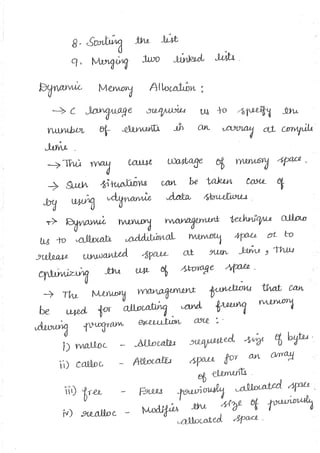 8. Sorting the list
9. Merging two linked lists.
Dynamic Memory Allocation :
→ C language requires us to specify the
number of elements in an array at compile
time.
→ This may cause wastage of memory space.
→ Such situations can be taken care of
by using dynamic data structures.
→ Dynamic memory management technique allow
us to allocate additional memory space or to
release unwanted space at run time, Thus
optimizing the use of storage space.
→ The Memory management functions that can
be used for allocating and freeing memory
during program execution are :
i) malloc - Allocates requested size of bytes.
ii) calloc - Allocates space for an array
of elements.
iii) free - Frees previously allocated space.
iv) realloc - Modifies the size of previously
allocated space.